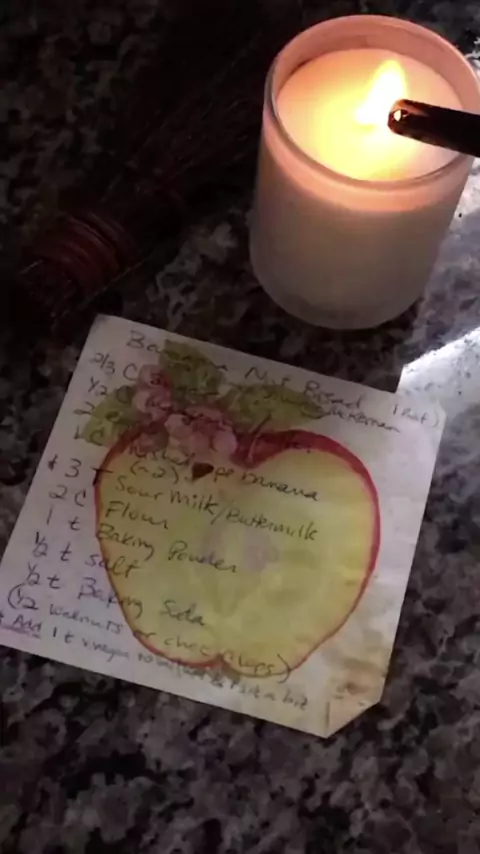 Banana Nut Bread (loaf)
2/3 C
1/2 C
2
1 C mashed ripe banana
(~2)
* 3 T Sour Milk/Buttermilk
2 C Flour
1 t Baking Powder
1/2 t Salt
1/2 t Baking Soda
(1/2 walnuts or choc chips)
* Add 1 t vinegar to milk & let sit a bit